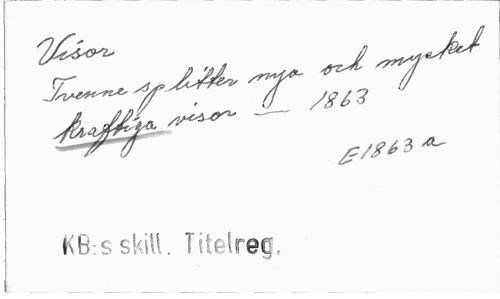 Visor
Tvenne splitter nya och mycket
kraftiga visor — 1863
E1863 a
KB:s skill. Titelreg.